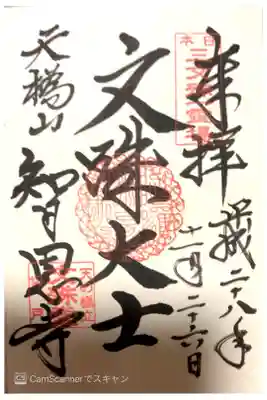 奉拝
平成二十八年
十一月二十六日
日本三文殊霊場
文殊大士
天橋山
智恩寺
CamScannerでスキャン